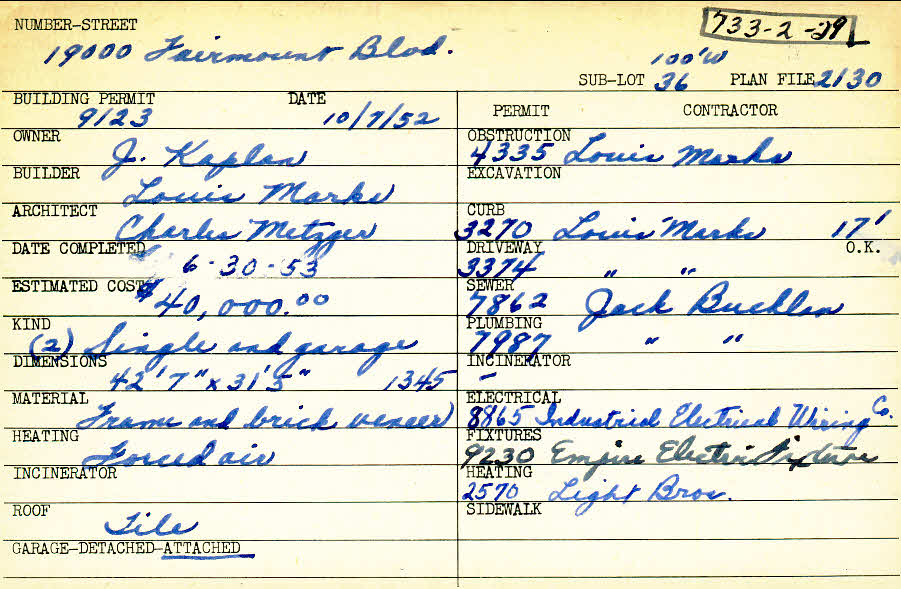 NUMBER-STREET
733-2-29
19000 Fairmount Blvd.
100'W
SUB-LOT 36 PLAN FILE 2130
BUILDING PERMIT DATE
9123 10/7/52
OWNER J. Kaplan
BUILDER Louis Marks
ARCHITECT Charles Metzger
DATE COMPLETED 6-30-53
ESTIMATED COST $40,000.00
KIND (2) Single and garage
DIMENSIONS 42'7" x 31'5" 1345
MATERIAL Frame and brick veneer
HEATING Forced air
INCINERATOR
ROOF Tile
GARAGE-DETACHED-ATTACHED
PERMIT CONTRACTOR
OBSTRUCTION
4335 Louis Marks
EXCAVATION
CURB
3270 Louis Marks 17'
DRIVEWAY O.K.
3374 " "
SEWER
7862 Jack
PLUMBING
7987 " "
INCINERATOR
-
ELECTRICAL
8865 Industrial Electrical Wiring Co.
FIXTURES
9230 Empire Electric Fixture
HEATING
2570 Light Bros.
SIDEWALK